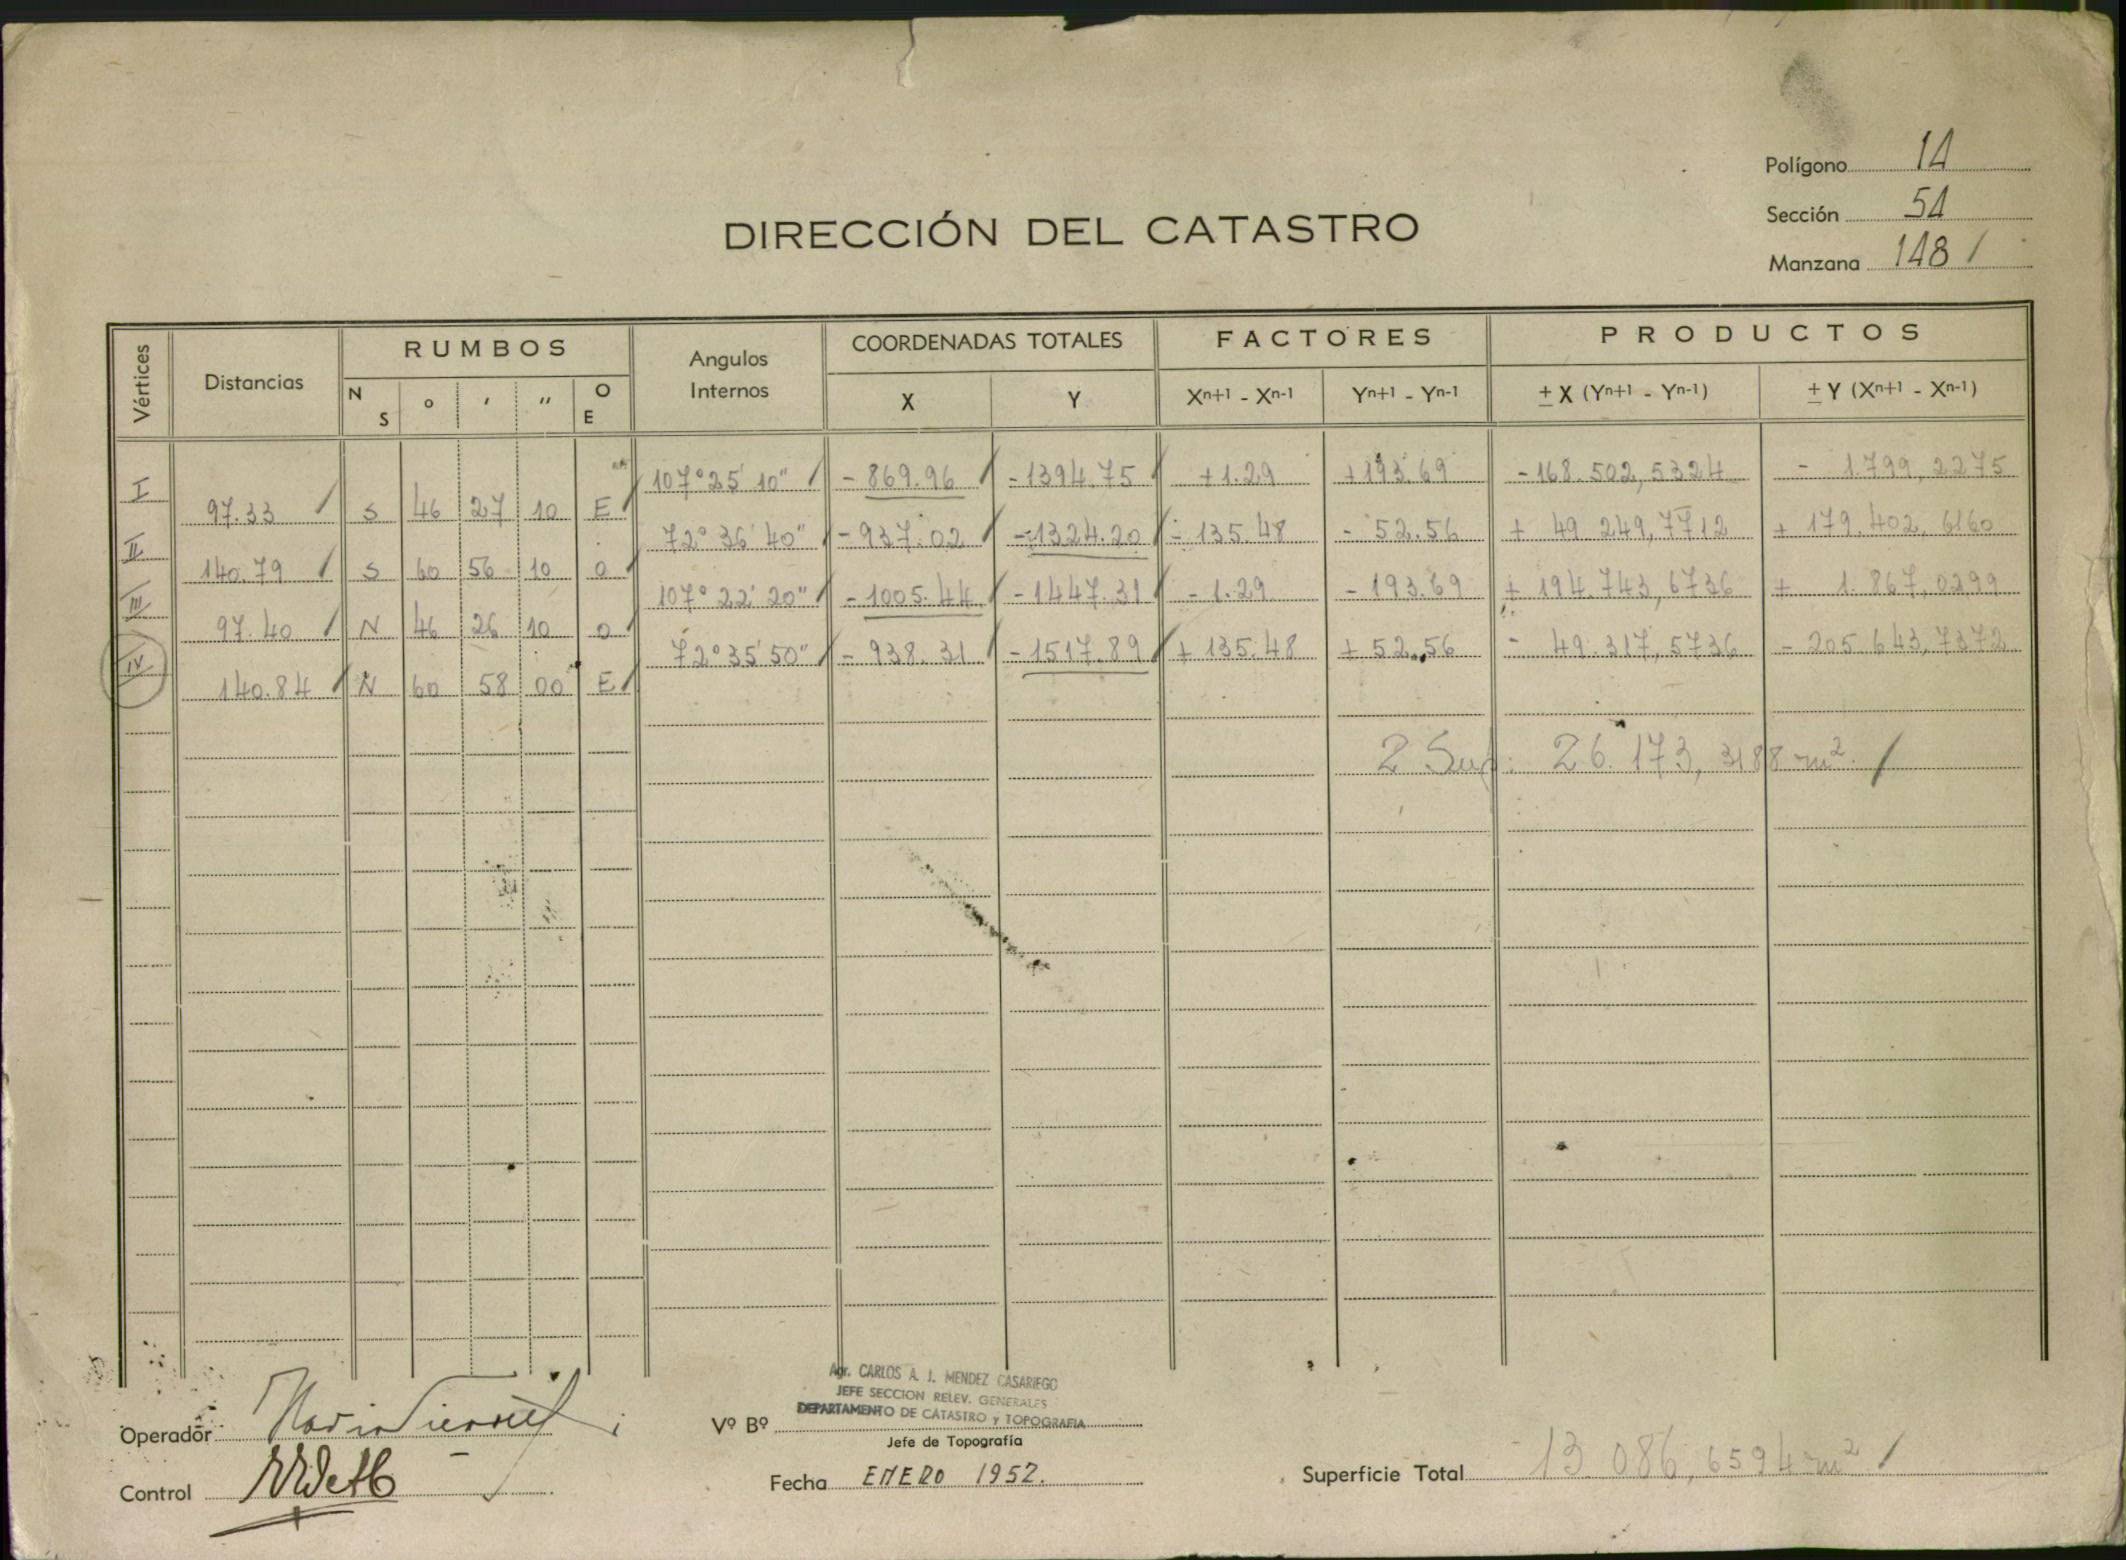 Polígono 14
Sección 54
Manzana 148 /
DIRECCIÓN DEL CATASTRO
Vértices Distancias RUMBOS Angulos Internos COORDENADAS TOTALES FACTORES PRODUCTOS
N S ° ′ ″ O E X Y Xn+1 - Xn-1 Yn+1 - Yn-1 ± X (Yn+1 - Yn-1) ± Y (Xn+1 - Xn-1)
I 107° 25' 10" / - 869.96 / - 1394.75 / + 1.29 + 193.69 - 168.502,5524 - 1.799,2275
97.33 / S 46 27 10 E /
II 72° 36' 40" / - 937.02 / - 1324.20 / - 135.48 - 52.56 + 49.249,7712 + 179.402,6160
140.79 / S 60 56 10 O /
III 107° 22' 20" / - 1005.44 / - 1447.31 / - 1.29 - 193.69 + 194.743,6736 + 1.867,0299
97.40 / N 46 26 10 O /
IV 72° 35' 50" / - 938.31 / - 1517.89 / + 135.48 + 52.56 - 49.317,5736 - 205.643,7372
140.84 / N 60 58 00 E /
2 Sup: 26.173,3188 m² /
Agr. CARLOS A. J. MENDEZ CASARIEGO
JEFE SECCION RELEV. GENERALES
DEPARTAMENTO DE CATASTRO y TOPOGRAFIA
Operador
Vº Bº
Jefe de Topografía
Control
Fecha ENERO 1952.
Superficie Total 13.086,6594 m² /